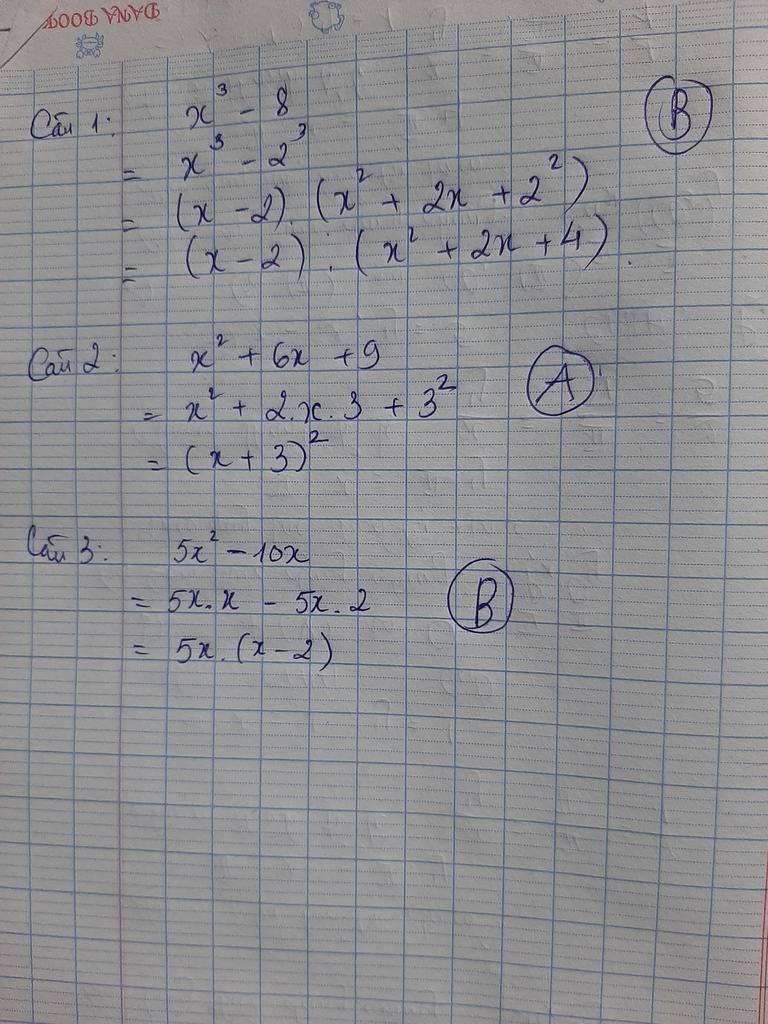 DANA BOOK
Câu 1: x³ - 8
B
= x³ - 2³
= (x - 2). (x² + 2x + 2²)
= (x - 2) . (x² + 2x + 4).
Câu 2: x² + 6x + 9
A
= x² + 2.x.3 + 3²
= (x + 3)²
Câu 3: 5x² - 10x
= 5x.x - 5x.2
B
= 5x.(x - 2)